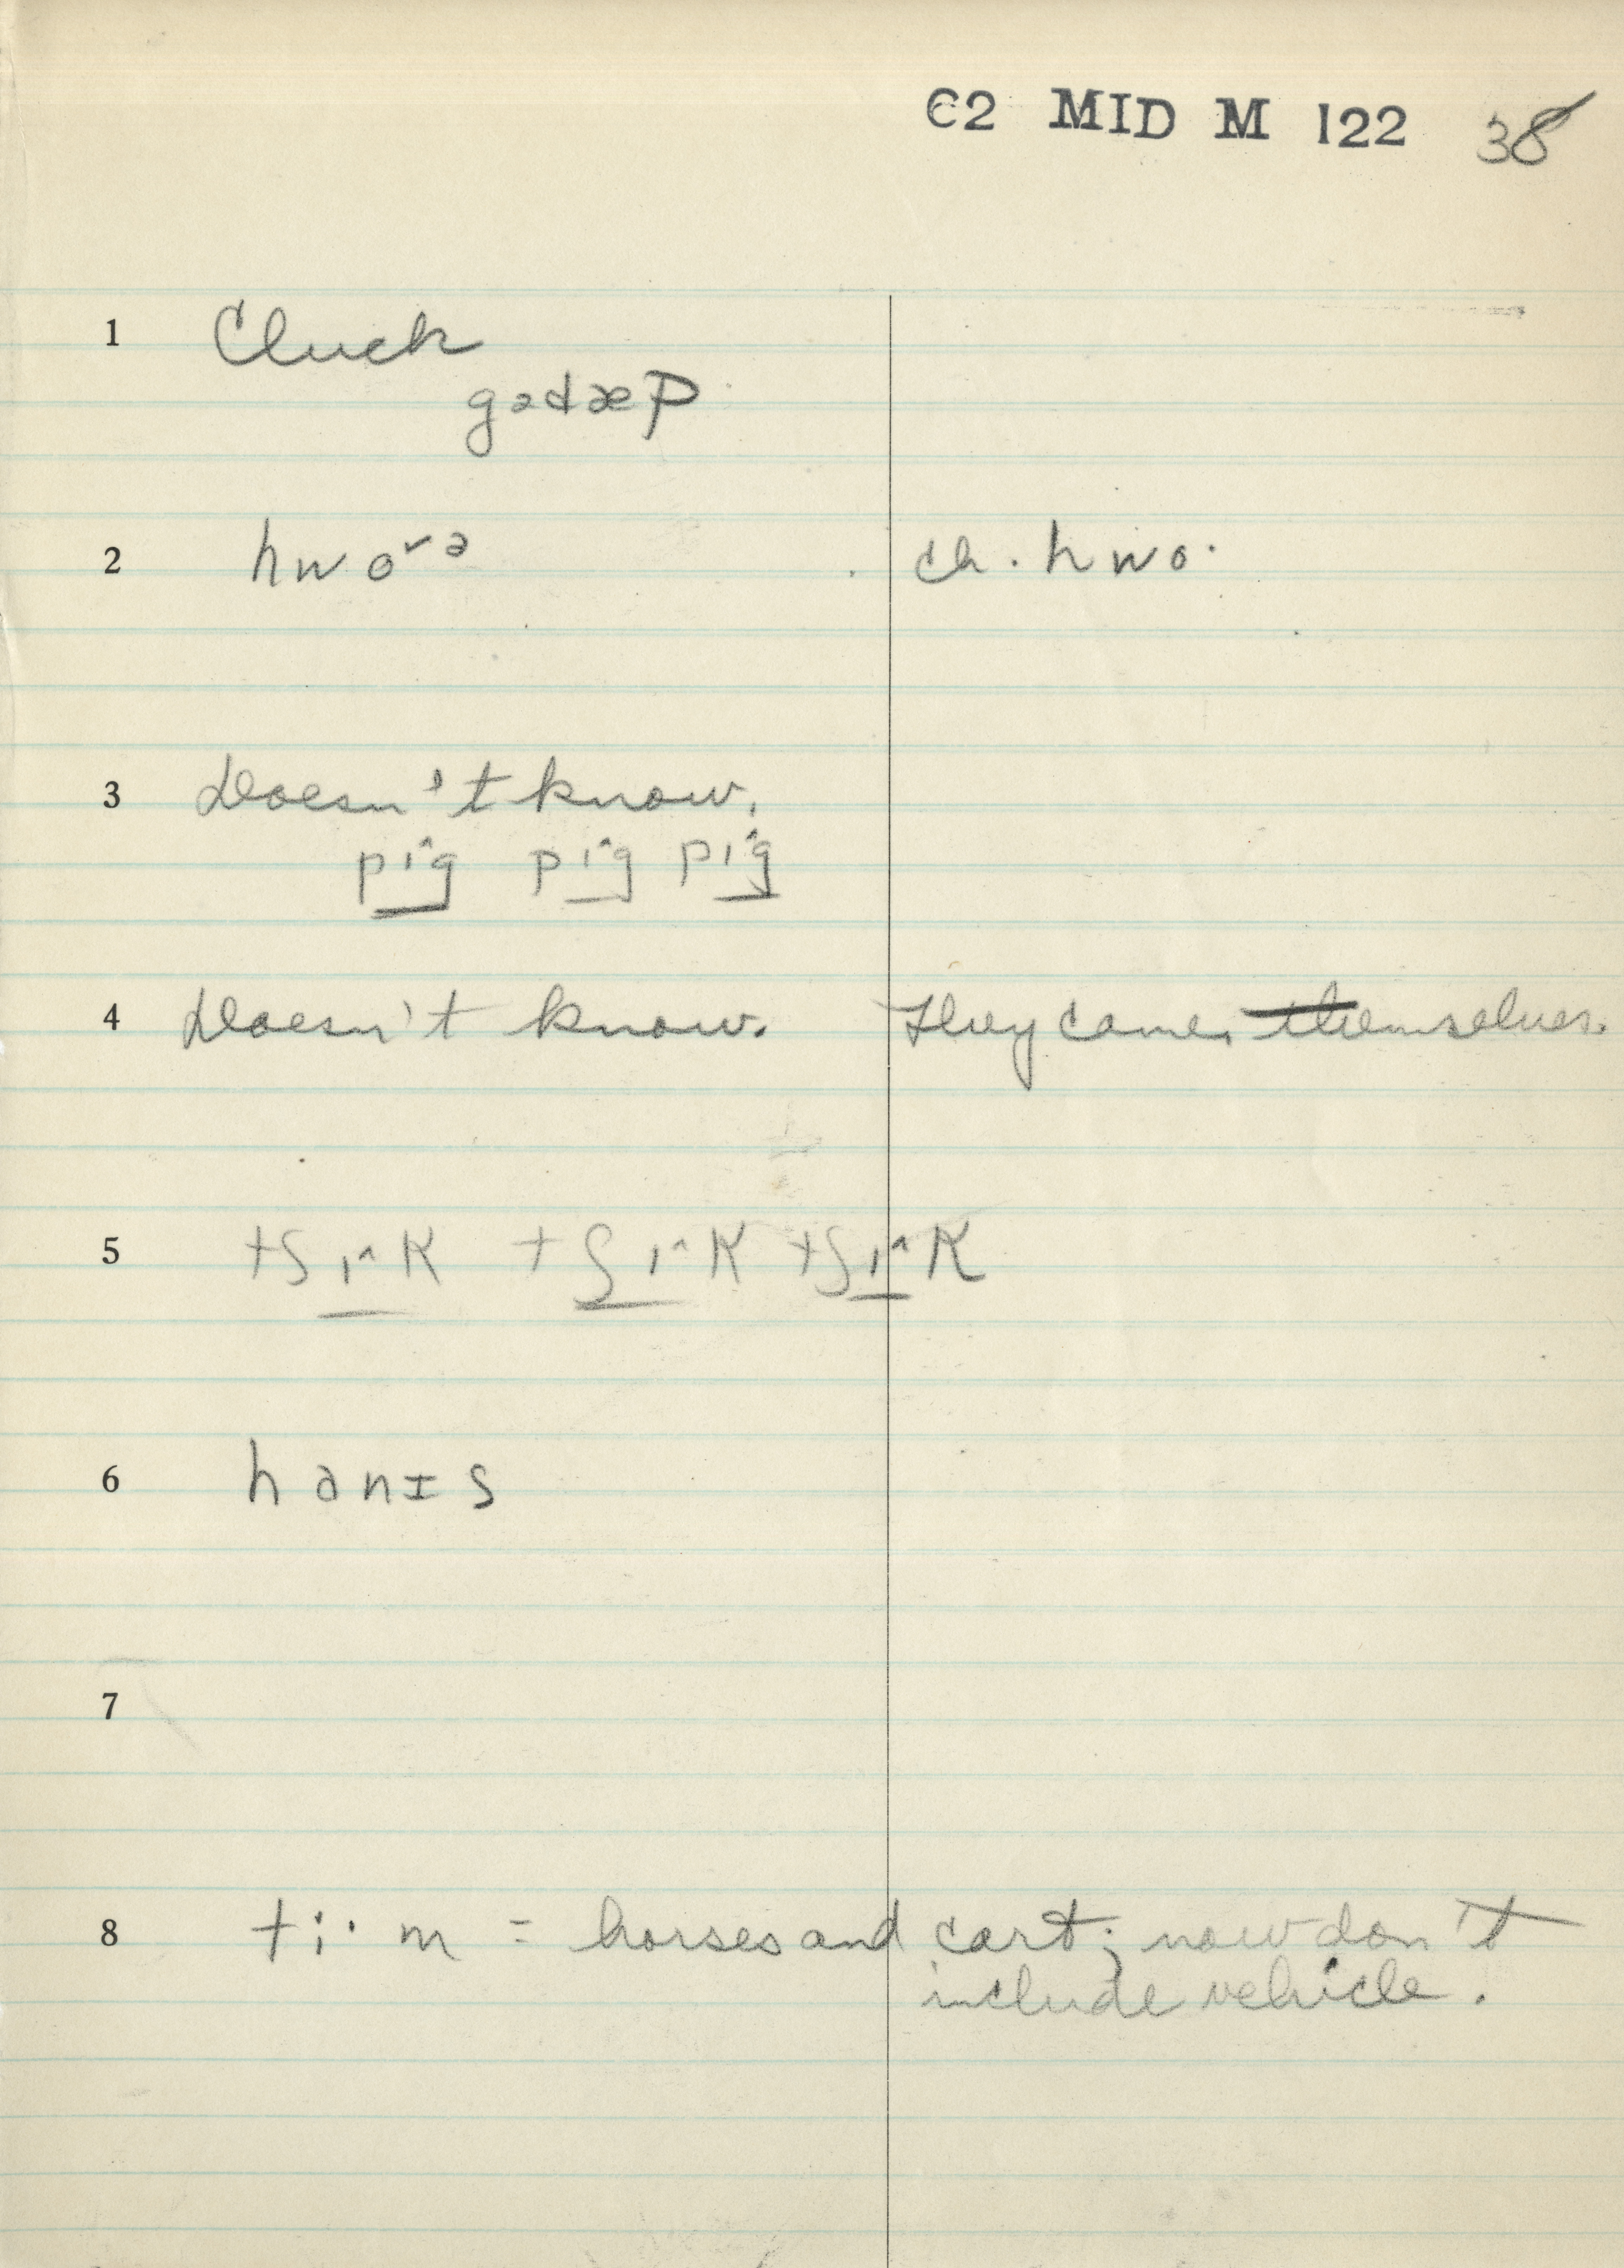 C2 MID M 122 38
1 Cluck
gədæp
2 hwoˇə ch. hwo·
3 Doesn't know.
pɪ^g pɪ^g pɪ^g
4 Doesn't know. They come, themselves.
5 tʃɪ^k tʃɪ^k tʃɪ^k
6 hanɪs
7
8 ti·m = horses and cart; now don't
include vehicle.